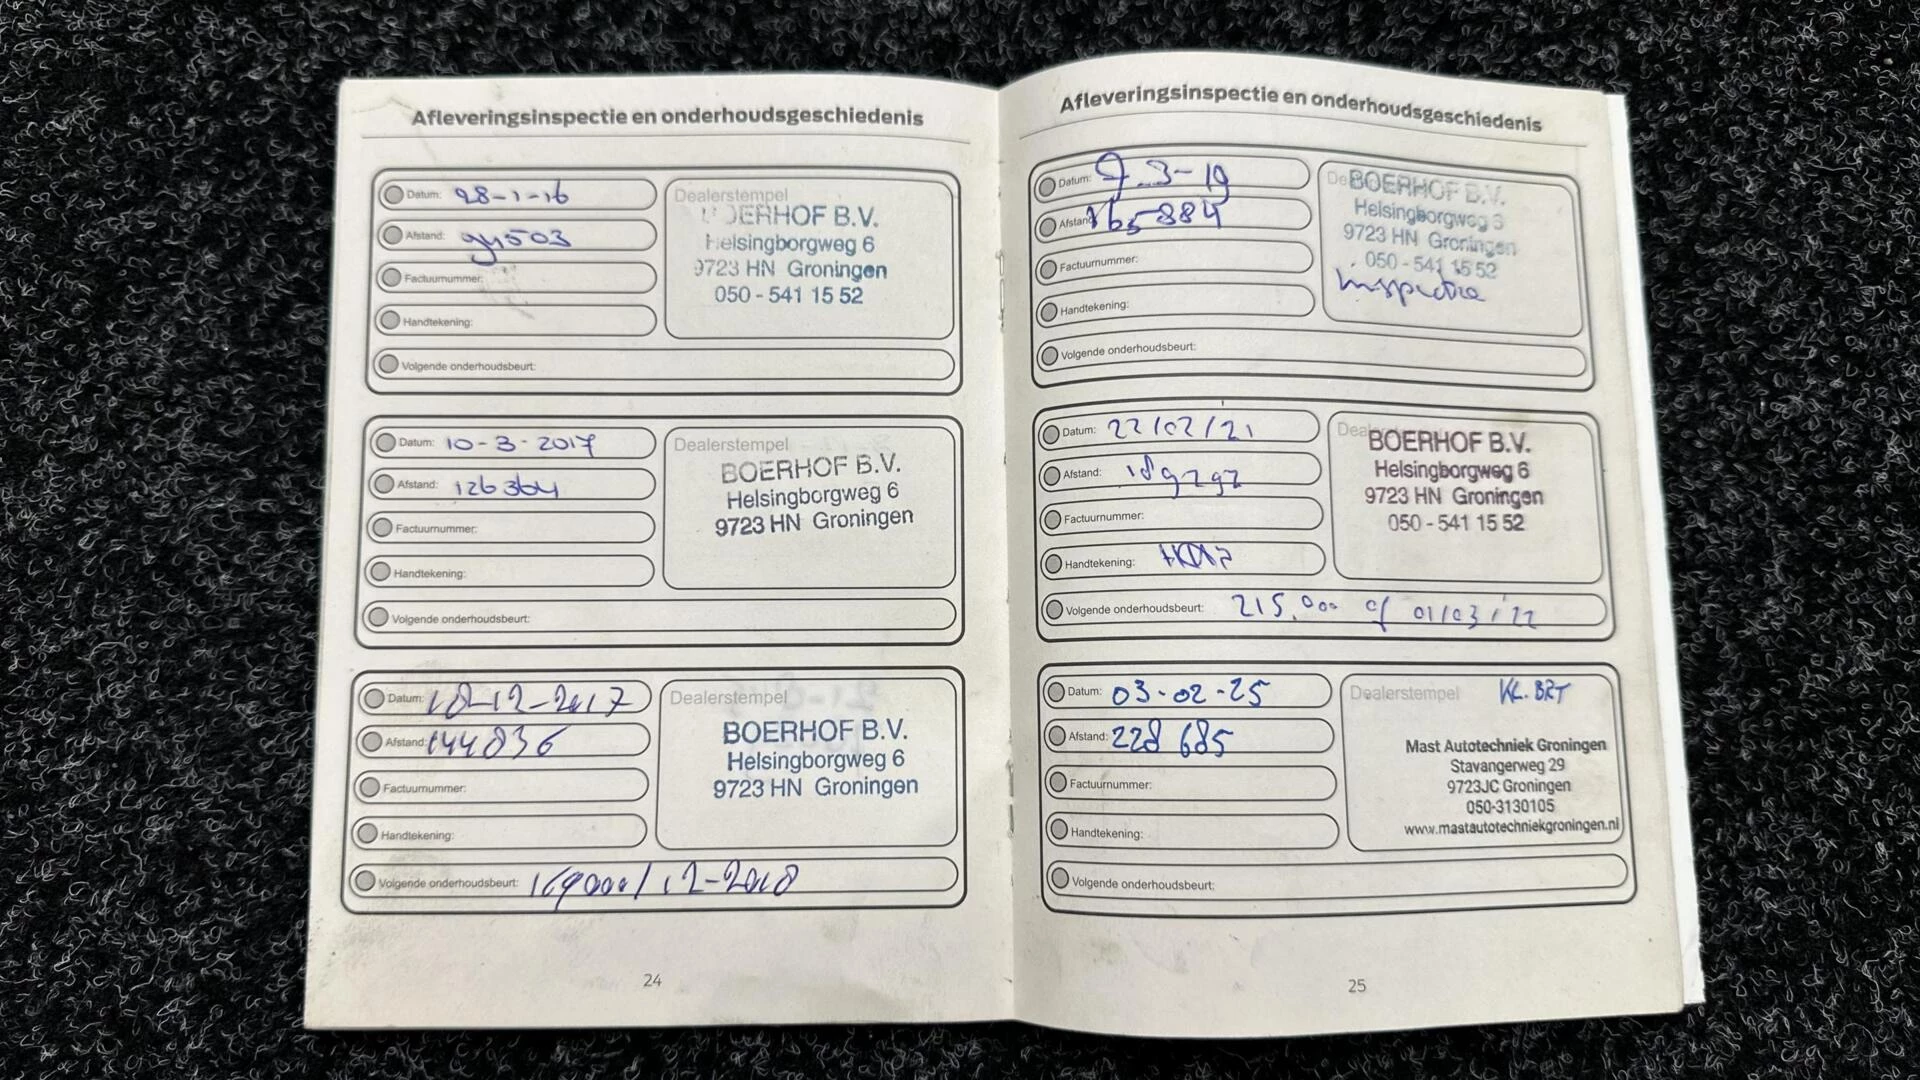 Afleveringsinspectie en onderhoudsgeschiedenis
Datum: 28-1-16
Afstand:
Factuurnummer:
Handtekening:
Volgende onderhoudsbeurt:
Dealerstempel
BOERHOF B.V.
Helsingborgweg 6
9723 HN Groningen
050 - 541 15 52
Datum: 10-3-2017
Afstand: 126364
Factuurnummer:
Handtekening:
Volgende onderhoudsbeurt:
Dealerstempel
BOERHOF B.V.
Helsingborgweg 6
9723 HN Groningen
Datum: 18-12-2017
Afstand: 144836
Factuurnummer:
Handtekening:
Volgende onderhoudsbeurt: 169000/12-2018
Dealerstempel
BOERHOF B.V.
Helsingborgweg 6
9723 HN Groningen
24
Afleveringsinspectie en onderhoudsgeschiedenis
Datum: 7-3-19
Afstand: 165884
Factuurnummer:
Handtekening:
Volgende onderhoudsbeurt:
BOERHOF B.V.
Helsingborgweg 6
9723 HN Groningen
050 - 541 15 52
Inspectie
Datum: 22/02/21
Afstand: 189292
Factuurnummer:
Handtekening:
Volgende onderhoudsbeurt: 215.000 of 01/03/22
BOERHOF B.V.
Helsingborgweg 6
9723 HN Groningen
050 - 541 15 52
Datum: 03-02-25
Afstand: 228 685
Factuurnummer:
Handtekening:
Volgende onderhoudsbeurt:
Dealerstempel KL. BRT
Mast Autotechniek Groningen
Stavangerweg 29
9723JC Groningen
050-3130105
www.mastautotechniekgroningen.nl
25